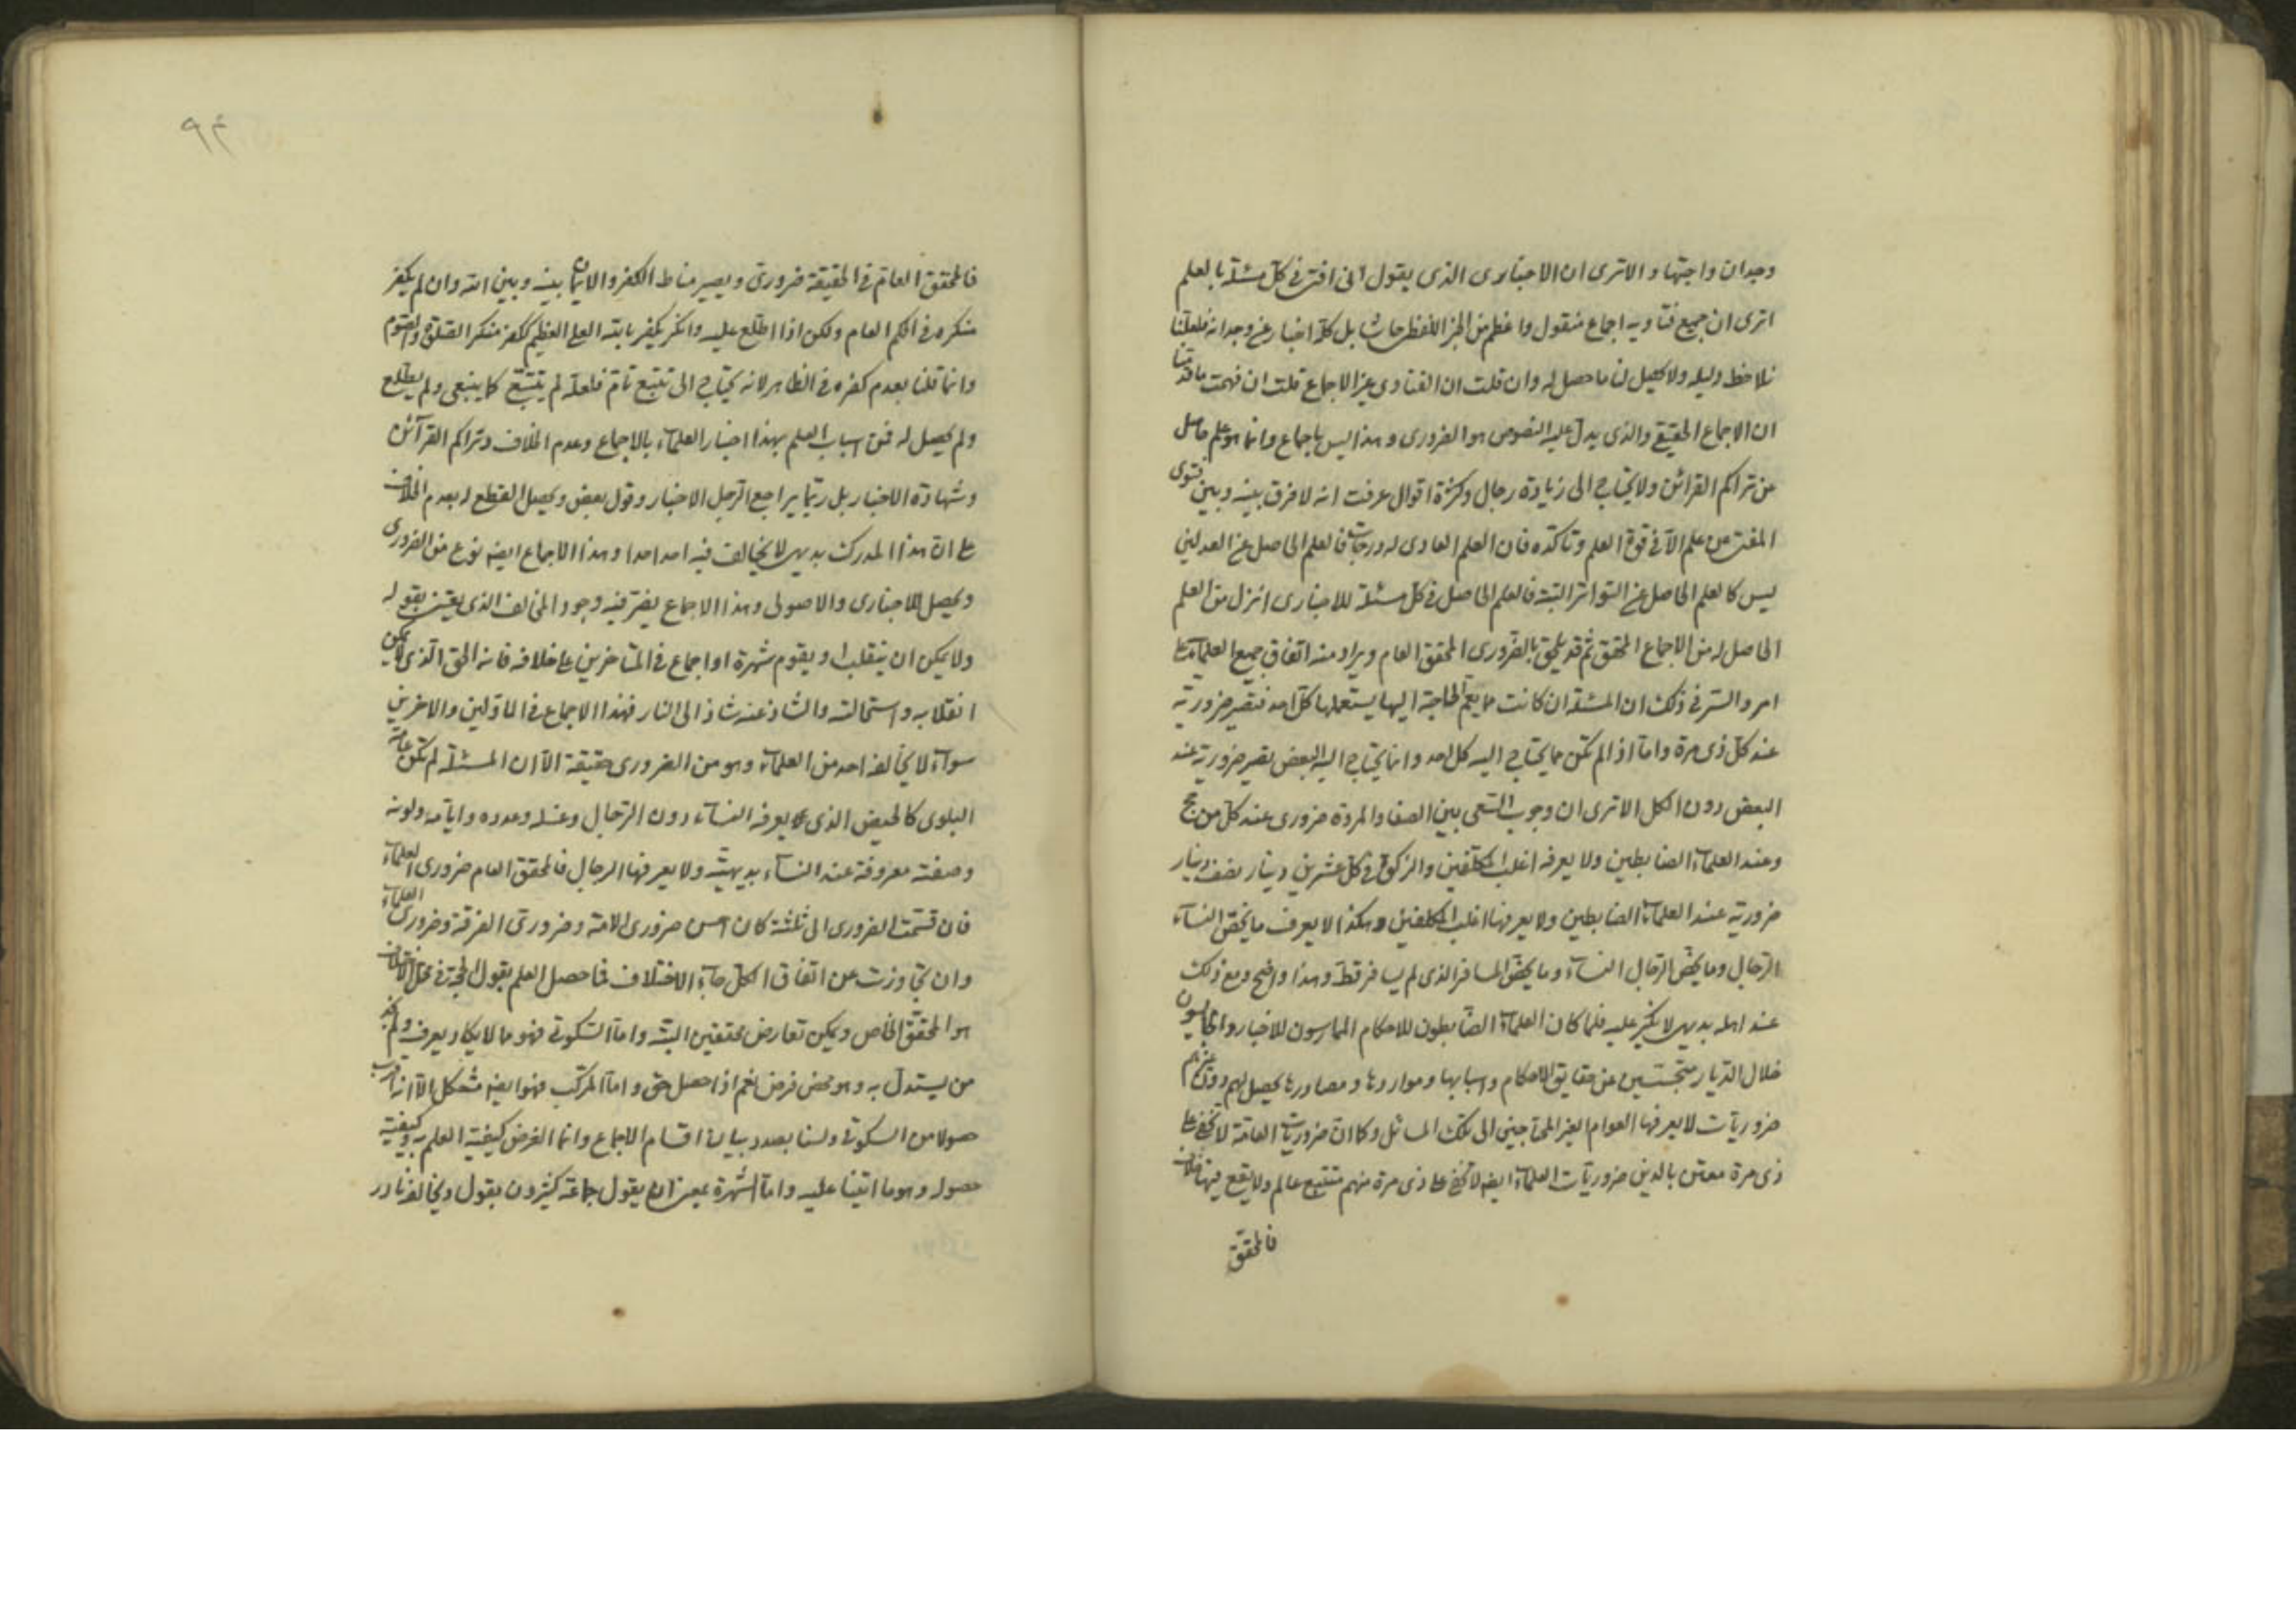 وجدان واجتهاد الاترى ان الاخبارى الذى يقول انى افتى فى كل مسئلة بالعلم
اترى ان جميع فتاويه اجماع منقول واعظم من الخبر اللفظى حاشا بل كله اخبار عن وجدانه فلعلنا
نلاحظ دليله ولا يحصل لنا ما حصل له وان قلت ان الفتاوى غير الاجماع قلت ان فهمت ما قدمنا
ان الاجماع الحقيقى والذى يدل عليه النصوص هو الضرورى وهذا ليس باجماع وانما هو علم حاصل
من تراكم القرائن ولا يحتاج الى زيادة رجال وكثرة اقوال عرفت انه لا فرق بينه وبين فتوى
المفتى عن علم الا فى قوة العلم وتاكده فان العلم العادى له درجات فالعلم الحاصل من العدلين
ليس كالعلم الحاصل من التواتر البتة فالعلم الحاصل فى كل مسئلة للاخبارى انزل من العلم
الحاصل له من الاجماع المحقق ثم قد يلحق بالضرورى المحقق العام ويراد منه اتفاق جميع العلماء على
امر والسر فى ذلك ان المسئلة ان كانت مما يعم الحاجة اليها يستعملها كل احد فتصير ضرورية
عند كل ذى مرة واما اذا لم تكن مما يحتاج اليه كل احد وانما يحتاج اليه البعض تصير ضرورية عند
البعض دون الكل الاترى ان وجوب السعى بين الصفا والمروة ضرورى عند كل من حج
وعند العلماء الضابطين ولا يعرفه اغلب المكلفين والزكوة فى كل عشرين دينار نصف دينار
ضرورية عند العلماء الضابطين ولا يعرفها اغلب المكلفين وهكذا لا يعرف ما يخص النساء
الرجال وما يخص الرجال النساء وما يخص المسافر الذى لم يسافر قط وهذا واضح ومع ذلك
عند اهله بديهى لا نكير عليه فلما كان العلماء الضابطون للاحكام الممارسون للاخبار والجايسون
خلال الديار متجسسين عن حقايق الاحكام واسبابها ومواردها ومصادرها يحصل لهم دون غيرهم
ضروريات لا يعرفها العوام الغير المحتاجين الى تلك المسائل وكما ان ضروريات العامة لا تخفى على
ذى مرة معتن بالدين ضروريات العلماء ايضا لا تخفى على ذى مرة منهم متتبع عالم ولا يقع فيها خلاف
فالمحقق
٩٤
فالمحقق العام فى الحقيقة ضرورى ويصير مناط الكفر والايمان بينه وبين الله وان لم يكفر
منكره فى الحكم العام ولكن اذا اطلع عليه وانكر يكفر بالله العلى العظيم ككفر منكر الصلوة والصوم
وانما قلنا بعدم كفره فى الظاهر لانه يحتاج الى تتبع تام فلعله لم يتتبع كما ينبغى ولم يطلع
ولم يحصل له فمن اسباب العلم بهذا اخبار العلماء بالاجماع وعدم الخلاف وتراكم القرآئن
وشهادة الاخبار بل ربما يراجع الرجل الاخبار وقول بعض ويحصل القطع له بعدم الخلاف
على ان هذا المدرك بديهى لا يخالف فيه احد احدا وهذا الاجماع ايضا نوع من الضرورى
ويحصل للاخبارى والاصولى وهذا الاجماع يضر فيه وجود المخالف الذى يعتنى بقوله
ولا يمكن ان ينقلب او يقوم شهرة او اجماع فى المتاخرين على خلافه فانه الحق الذى لا يمكن
انقلابه واستحالته والشاذ عنه شاذ الى النار فهذا الاجماع فى الاولين والاخرين
سوآء لا يخالفه احد من العلماء وهو من الضرورى حقيقة الا ان المسئلة لم تكن عامة
البلوى كالحيض الذى يعرفه النسآء دون الرجال وغسله وعدده وايامه ولونه
وصفته معروفة عند النسآء بديهية ولا يعرفها الرجال فالمحقق العام ضرورى العلماء
فان قسمت الضرورى الى ثلثة كان احسن ضرورى الامة وضرورى الفرقة وضرورى العلماء
وان تجاوزت عن اتفاق الكل جآء الاختلاف فما حصل العلم بقول الحجة فى محل الاختلاف
هو المحقق الخاص ويمكن تعارض محققين البتة واما السكوتى فهو مما لا يكاد يعرف ولم نجد
من يستدل به وهو محض فرض نعم اذا حصل حق واما المركب فهو ايضا مشكل الا انه اقرب
حصولا من السكوتى ولسنا بصدد بيان اقسام الاجماع وانما الغرض كيفية العلم به وكيفية
حصوله وهو ما اتينا عليه واما الشهرة بمعنى ان يقول جماعة كثيرون بقول ويخالف نادر